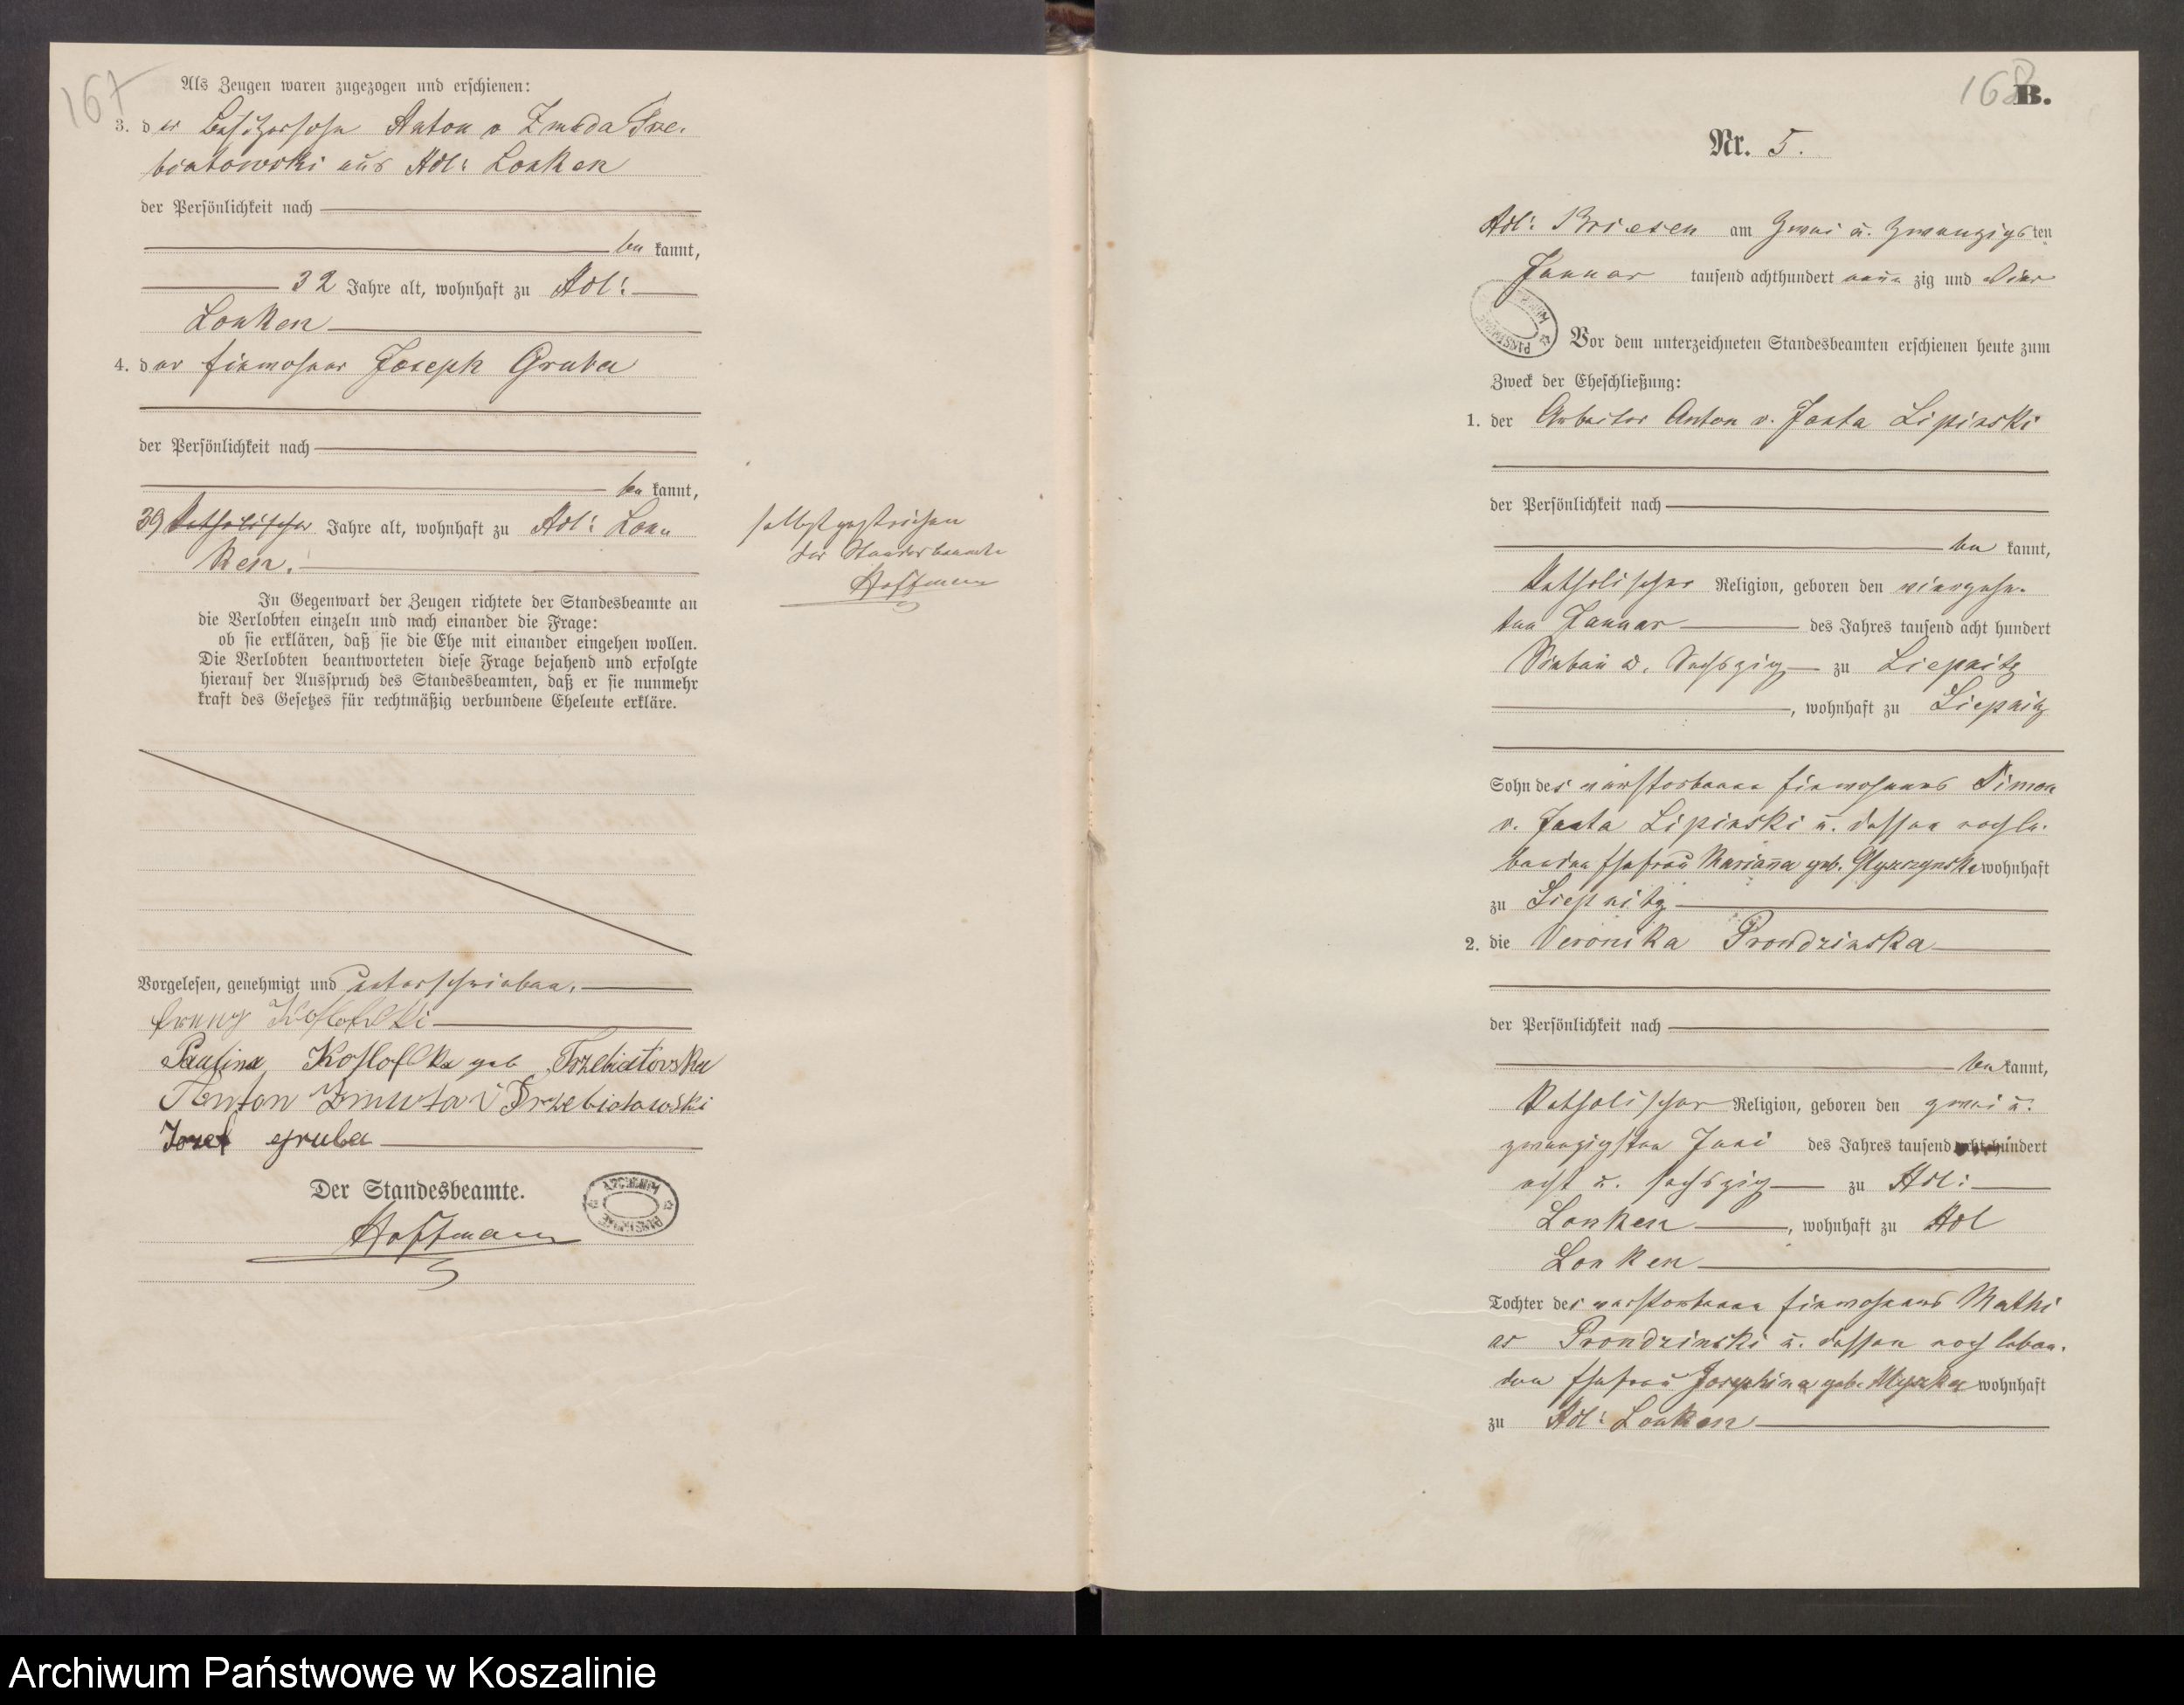 167
Als Zeugen waren zugezogen und erschienen:
3. der Besitzersohn Anton v Zmuda Trze-
biatowski aus Adl: Lonken
der Persönlichkeit nach
be kannt,
32 Jahre alt, wohnhaft zu Adl:
Lonken
4. der Einwohner Joseph Gruba
der Persönlichkeit nach
be kannt,
39 Katholischer Jahre alt, wohnhaft zu Adl: Lon
ken.
selbst gestrichen
der Standesbeamte
Hoffmann
In Gegenwart der Zeugen richtete der Standesbeamte an
die Verlobten einzeln und nach einander die Frage:
ob sie erklären, daß sie die Ehe mit einander eingehen wollen.
Die Verlobten beantworteten diese Frage bejahend und erfolgte
hierauf der Ausspruch des Standesbeamten, daß er sie nunmehr
kraft des Gesetzes für rechtmäßig verbundene Eheleute erkläre.
Vorgelesen, genehmigt und unterschrieben.
Paulina geb Trzebiatowska
Anton Zmuda v Trzebiatowski
Jozef Gruba
Der Standesbeamte.
Hoffmann
168
B.
Nr. 5.
Adl: Briesen am Zwei u. Zwanzigsten
Januar tausend achthundert neun zig und Vier
Vor dem unterzeichneten Standesbeamten erschienen heute zum
Zweck der Eheschließung:
1. der Arbeiter Anton v. Janta Lipinski
der Persönlichkeit nach
be kannt,
Katholischer Religion, geboren den vierzehn-
ten Januar des Jahres tausend acht hundert
Sieben u. Sechszig zu Liepnitz
, wohnhaft zu Liepnitz
Sohn des verstorbenen Einwohners Simon
v. Janta Lipinski u. dessen noch le-
benden Ehefrau Marianna geb. wohnhaft
zu Liepnitz
2. die Veronika Prondzinska
der Persönlichkeit nach
be kannt,
Katholischer Religion, geboren den zwei u.
zwanzigsten Juni des Jahres tausend achthundert
acht u. sechszig zu Adl:
Lonken, wohnhaft zu Adl
Lonken
Tochter des verstorbenen Einwohners Mathi
as Prondzinski u. dessen noch leben-
den Ehefrau Josephina geb. wohnhaft
zu Adl: Lonken
Archiwum Państwowe w Koszalinie